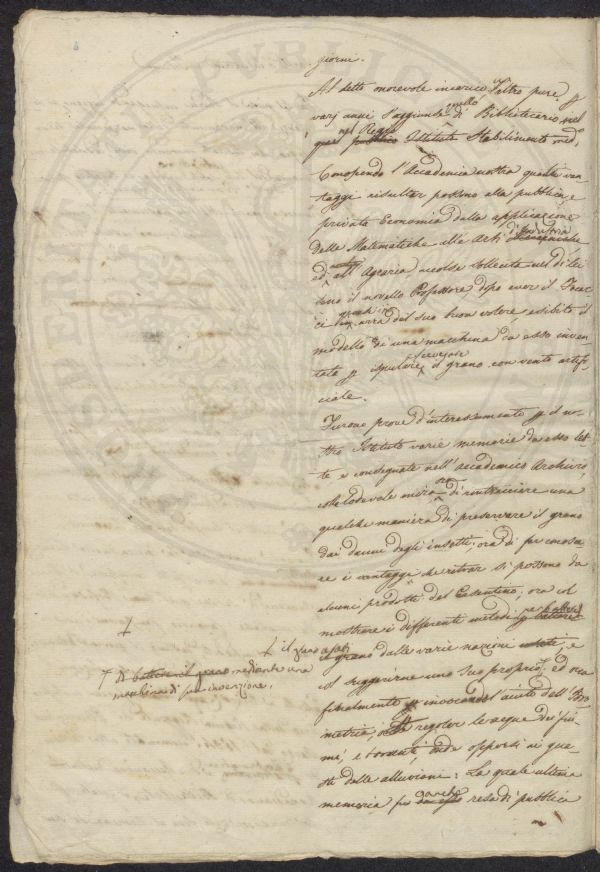 giorni.
Al detto onorevole incarico l'altro pure p
varj anni s'aggiunse quello di Bibliotecario nel
quel pubblico nel Regio Istituto Stabilimento med.
Conoscendo l'Accademia nostra quali van-
taggi risultar possono alla pubblica, e
privata Economia dalla applicazione
delle Matematiche alle Arti d'Industria
ed all' Agraria accolse sollecita nel di lei
seno il novello Professore, dopo aver il Pacc
ci del suo buon volere esibito il
modello di una macchina da esso inven-
tata p ispulare scevrare il grano con vento artifi-
ciale.
Furono prove d'interessamento p il no-
stro Istituto varie memorie da esso let-
te e consegnate nell' accademico Archivio,
colle lodevole mira ora di rintracciare una
qualche maniera di preservare il grano
dai danni degli insetti; ora di far conosce-
re i vantaggi che ritrar si possono da
alcuni prodotti del Casentino; ora col
mostrare i differenti metodi p battere
il grano dalle varie nazioni usati, e
col suggerirne uno suo proprio, ed ora
finalmente invocando l'aiuto dell'
metria, a regolar le acque dei fiu-
mi, e torrenti, onde opporsi ai gua-
sti delle alluvioni: La quale ultima
memoria fu anche resa di pubblica
il grano
di battere il grano mediante una
macchina di sua invenzione.